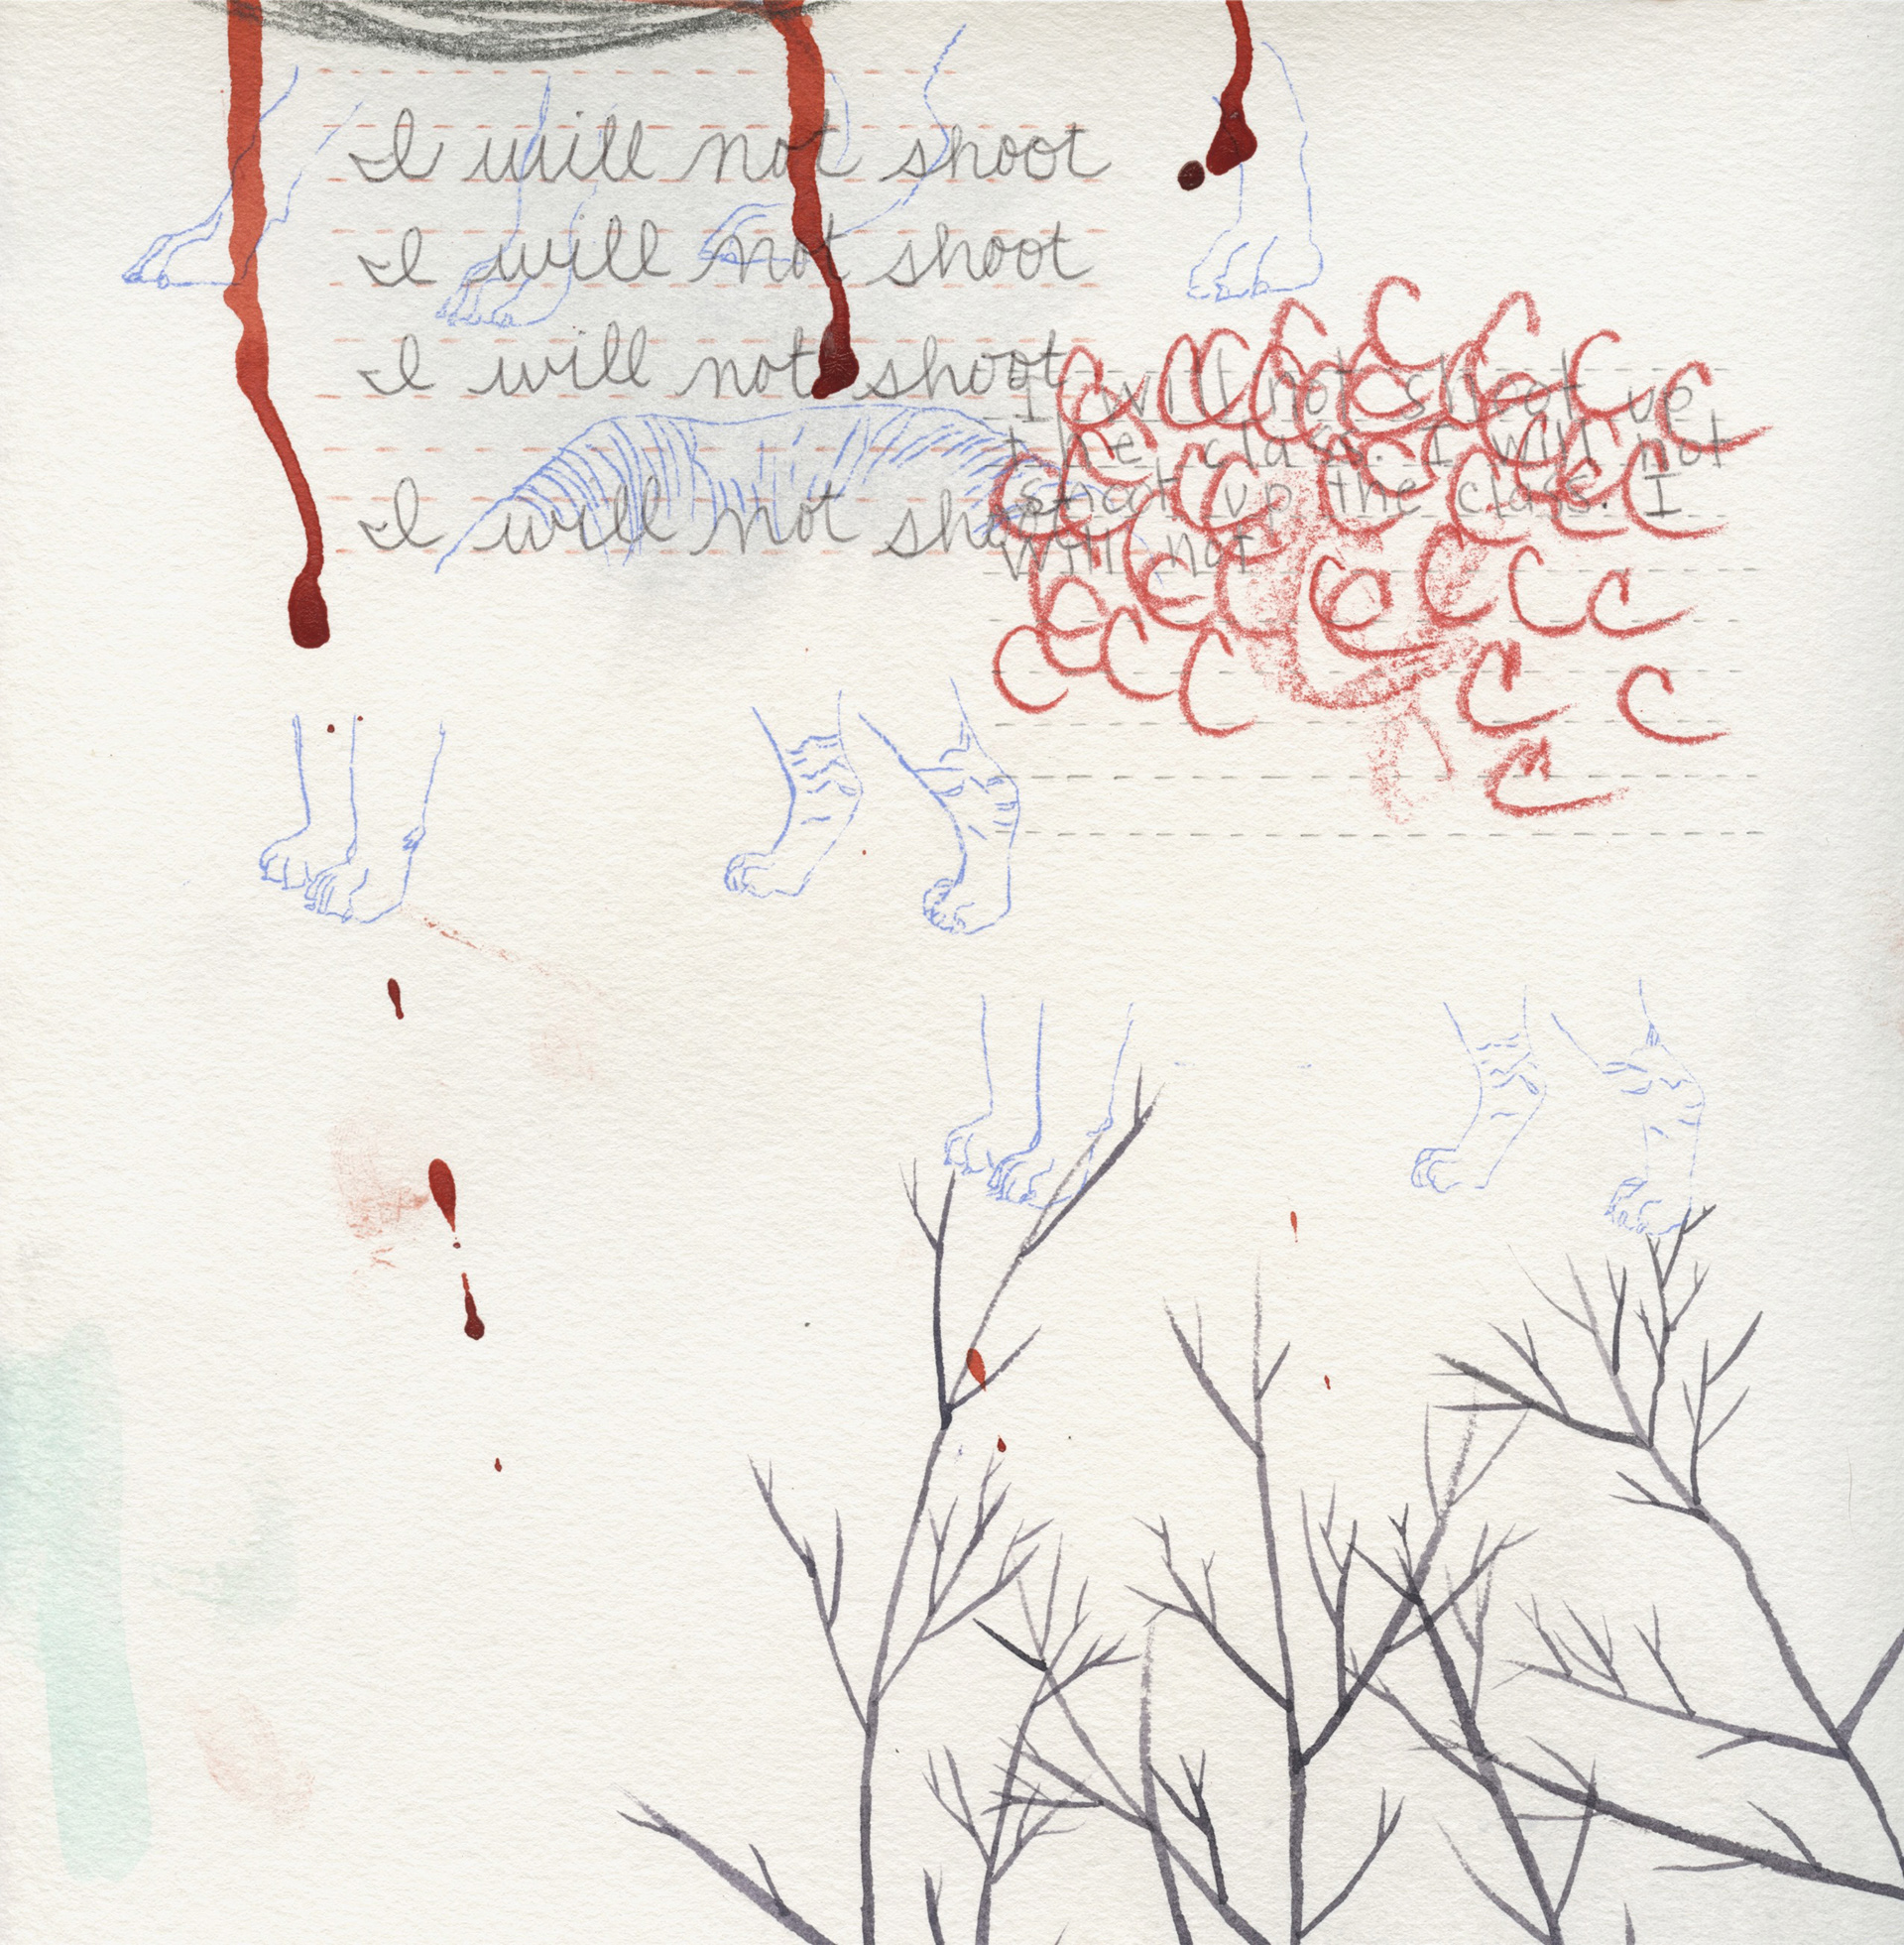 I will not shoot
I will not shoot
I will not shoot
I will not sho
I will not shoot up
the class. I will not
shoot up the class. I
will not
C C C C C C
C C C C C C C
C C C C C C C
C C C C C C C
C C C C C
C